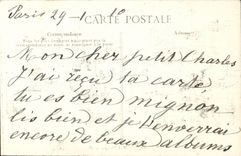 Paris 29-1-10
CARTE POSTALE
Correspondance
Mon cher petit Charles
J'ai reçu ta carte
tu es bien mignon
lis bien et je t'enverrai
encore de beaux albums